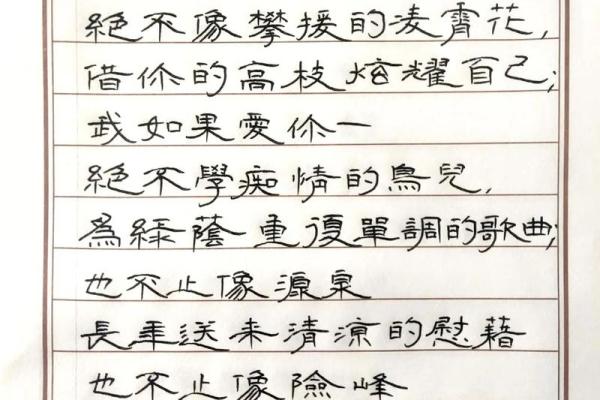 絕不像攀援的凌霄花,
借你的高枝炫耀自己;
我如果愛你—
絕不學痴情的鳥兒,
為綠蔭重復單調的歌曲;
也不止像源泉
長年送來清涼的慰藉
也不止像險峰